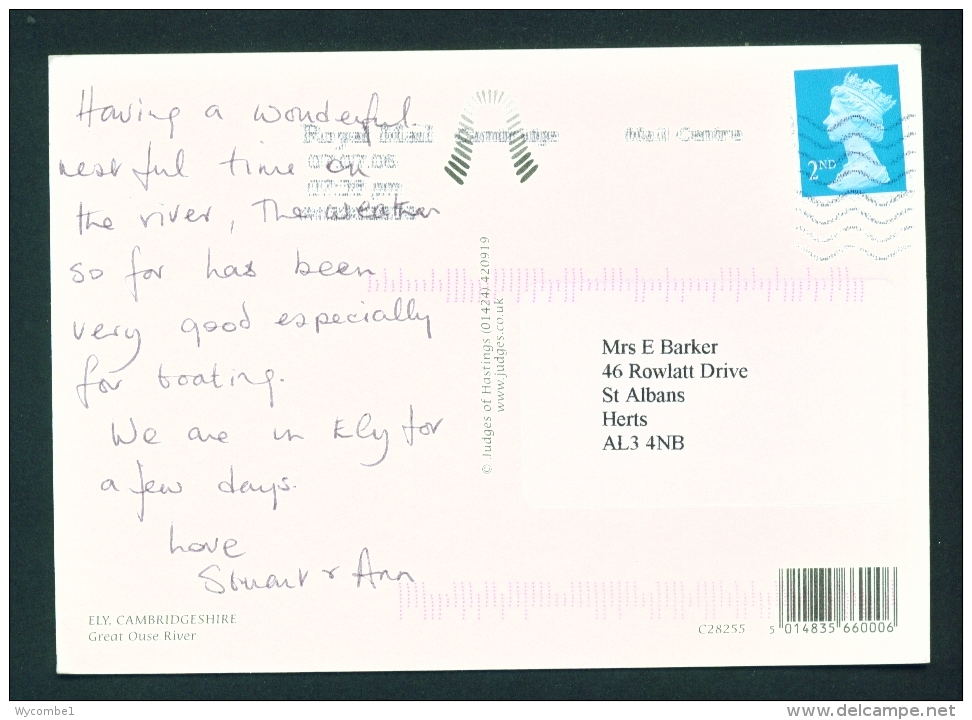 Having a wonderful
restful time on
the river, The weather
so far has been
very good especially
for boating.
We are in Ely for
a few days.
Love
Stuart & Ann
ELY, CAMBRIDGESHIRE
Great Ouse River
Royal Mail Cambridge Mail Centre
2ND
© Judges of Hastings (01424) 420919
www.judges.co.uk
Mrs E Barker
46 Rowlatt Drive
St Albans
Herts
AL3 4NB
C28255
5 014835 660006
Wycombe1
delcampe.net